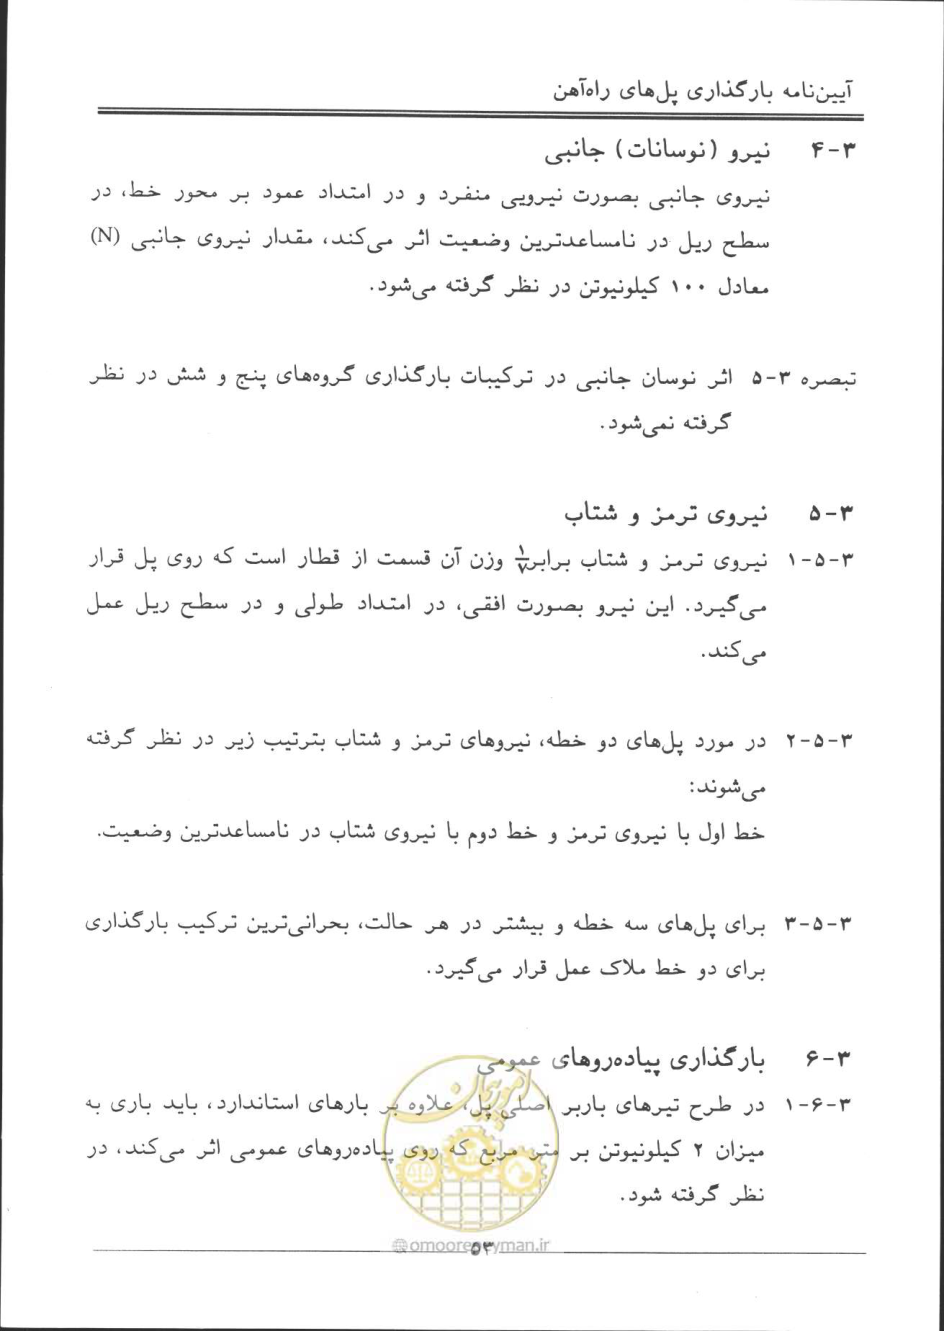 آیین‌نامه بارگذاری پل‌های راه‌آهن
۳-۴ نیرو (نوسانات) جانبی
نیروی جانبی بصورت نیرویی منفرد و در امتداد عمود بر محور خط، در
سطح ریل در نامساعدترین وضعیت اثر می‌کند، مقدار نیروی جانبی (N)
معادل ۱۰۰ کیلونیوتن در نظر گرفته می‌شود.
تبصره ۳-۵ اثر نوسان جانبی در ترکیبات بارگذاری گروه‌های پنج و شش در نظر
گرفته نمی‌شود.
۳-۵ نیروی ترمز و شتاب
۳-۵-۱ نیروی ترمز و شتاب برابر ۱/۷ وزن آن قسمت از قطار است که روی پل قرار
می‌گیرد. این نیرو بصورت افقی، در امتداد طولی و در سطح ریل عمل
می‌کند.
۳-۵-۲ در مورد پل‌های دو خطه، نیروهای ترمز و شتاب بترتیب زیر در نظر گرفته
می‌شوند:
خط اول با نیروی ترمز و خط دوم با نیروی شتاب در نامساعدترین وضعیت.
۳-۵-۳ برای پل‌های سه خطه و بیشتر در هر حالت، بحرانی‌ترین ترکیب بارگذاری
برای دو خط ملاک عمل قرار می‌گیرد.
۳-۶ بارگذاری پیاده‌روهای عمومی
۳-۶-۱ در طرح تیرهای باربر اصلی پل، علاوه بر بارهای استاندارد، باید باری به
میزان ۲ کیلونیوتن بر متر مربع که روی پیاده‌روهای عمومی اثر می‌کند، در
نظر گرفته شود.
امور پیمان
@omoorepeyman.ir
۵۳